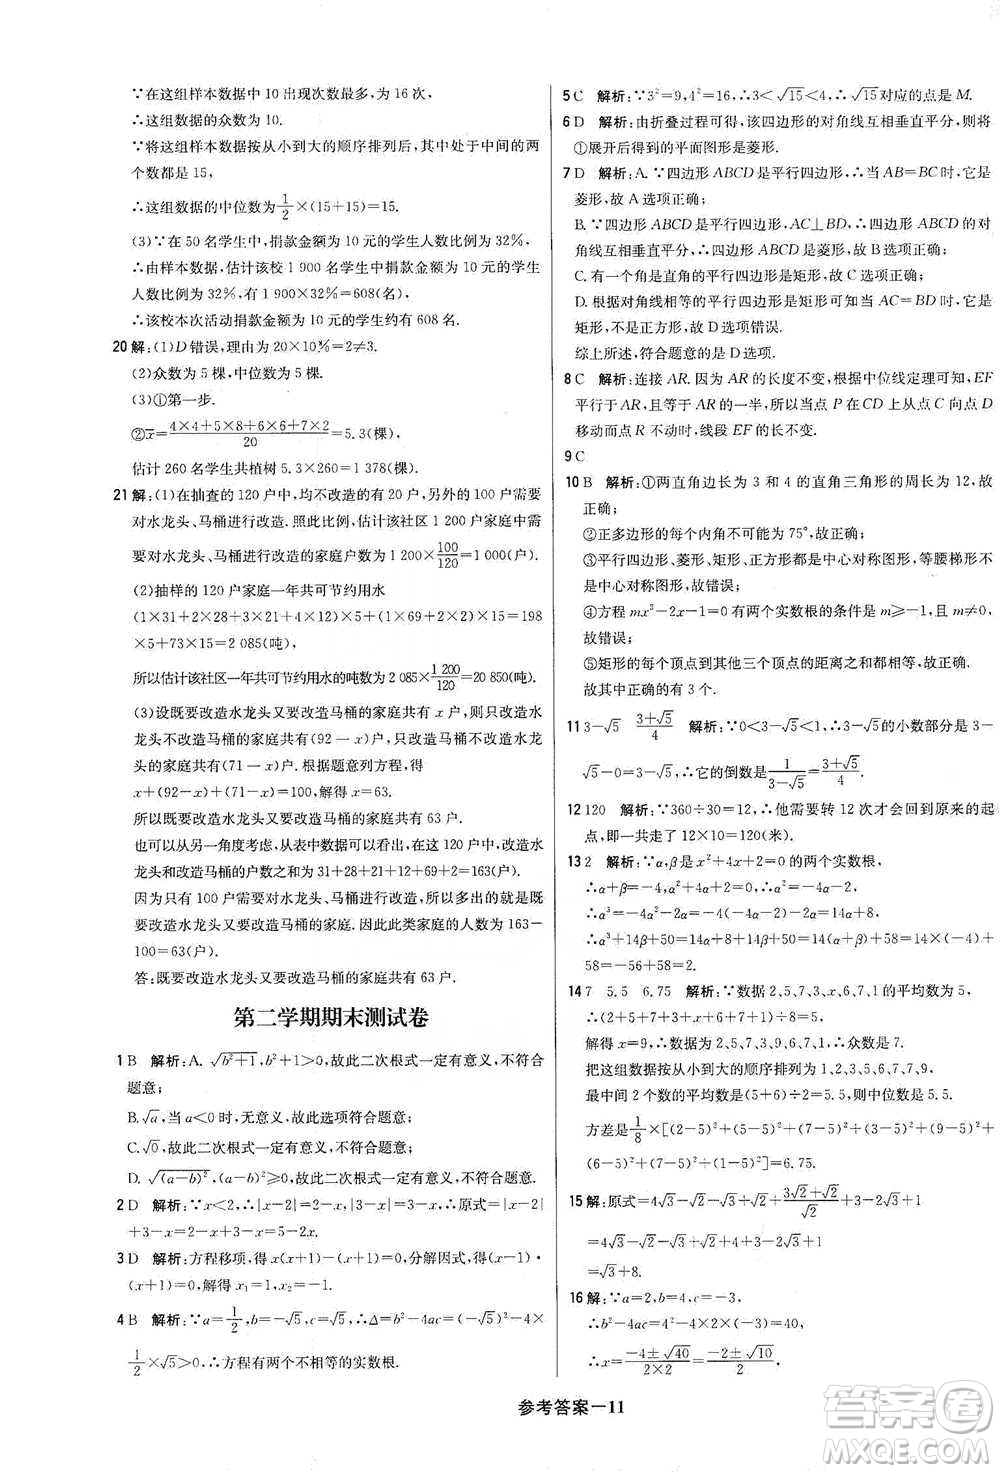 ∵在这组样本数据中 10 出现次数最多,为 16 次,
∴这组数据的众数为 10.
∵将这组样本数据按从小到大的顺序排列后,其中处于中间的两
个数都是 15,
∴这组数据的中位数为1/2×(15+15)=15.
(3)∵在 50 名学生中,捐款金额为 10 元的学生人数比例为 32%,
∴由样本数据,估计该校 1 900 名学生中捐款金额为 10 元的学生
人数比例为 32%,有 1 900×32%=608(名),
∴该校本次活动捐款金额为 10 元的学生约有 608 名.
20 解:(1)D 错误,理由为 20×10%=2≠3.
(2)众数为 5 棵,中位数为 5 棵.
(3)①第一步.
②x̄=(4×4+5×8+6×6+7×2)/20=5.3(棵),
估计 260 名学生共植树 5.3×260=1 378(棵).
21 解:(1)在抽查的 120 户中,均不改造的有 20 户,另外的 100 户需要
对水龙头、马桶进行改造.按照此比例,估计该社区 1 200 户中,需
要对水龙头、马桶进行改造的家庭户数为 1 200×100/120=1 000(户).
(2)抽样的 120 户家庭一年共可节约用水
(1×31+2×28+3×21+4×12)×5+(1×69+2×2)×15=198
×5+73×15=2 085(吨),
所以估计该社区一年共可节约用水的吨数为 2 085×1 200/120=20 850(吨).
(3)设既要改造水龙头又要改造马桶的家庭共有 x 户,则只改造水
龙头不改造马桶的家庭共有(92-x)户,只改造马桶不改造水龙头
的家庭共有(71-x)户.根据题意列方程,得
x+(92-x)+(71-x)=100,解得 x=63.
所以既要改造水龙头又要改造马桶的家庭共有 63 户.
也可以从另一角度考虑,从表中数据可以看出,在 100 户中,改造水
龙头和改造马桶的户数之和为 31+28+21+12+69+2=163(户).
因为只有 100 户家庭需对水龙头、马桶进行改造,所以多出的户数
为既改造水龙头又改造马桶的家庭,因此此类家庭的人数为 163-
100=63(户).
答:既要改造水龙头又要改造马桶的家庭共有 63 户.
第二学期期末测试卷
1 B 解析:A.√(b²+1),b²+1>0,故此二次根式一定有意义,不符合
题意;
B.√a,当 a<0 时,无意义,故此选项符合题意;
C.√0,故此二次根式一定有意义,不符合题意;
D.√((a-b)²),故此二次根式一定有意义,不符合题意.
2 D 解析:∵x<2,∴|x-2|=2-x,|3-x|=3-x,原式=|x-2|
+3-x=2-x+3-x=5-2x.
3 D 解析:方程移项,得 x(x+1)-(x+1)=0,分解因式,得(x-1)·
(x+1)=0,解得 x₁=1,x₂=-1.
4 B 解析:∵a=1/2,b=-√5,c=√5,∴Δ=b²-4ac=(-√5)²-4×
1/2×√5>0,∴方程有两个不相等的实数根.
5 C 解析:∵3²=9,4²=16,∴3<√15<4,∴√15对应的点是 M.
6 D 解析:由折叠过程可得,该四边形的对角线互相垂直平分,故将
①展开后得到的平面图形是菱形.
7 D 解析:A.∵四边形 ABCD 是平行四边形,∴当 AB=BC 时,它是
菱形,故 A 选项正确;
B.∵四边形 ABCD 是平行四边形,AC⊥BD,∴四边形 ABCD 的对
角线互相垂直平分,∴四边形 ABCD 是菱形,故 B 选项正确;
C.有一个角是直角的平行四边形是矩形,故 C 选项正确;
D.根据对角线相等的平行四边形是矩形可知当 AC=BD 时,它是
矩形,不是正方形,故 D 选项错误.
综上所述,符合题意的是 D 选项.
8 C 解析:连接 AR.因为 AR 的长度不变,根据中位线定理可知,EF
平行于 AR,且等于 AR 的一半,所以当点 P 在 CD 上从点 C 向点 D
移动而点 R 不动时,线段 EF 的长不变.
9 C
10 B 解析:①两直角边长为 3 和 4 的直角三角形的周长为 12,故正
确;
②正多边形的每个内角不可能为 75°,故正确;
③平行四边形、菱形、矩形、正方形都是中心对称图形,等腰梯形不
是中心对称图形,故错误;
④方程 mx²-2x-1=0 有两个实数根的条件是 m≥-1,且 m≠0,
故错误;
⑤矩形的每个顶点到其他三个顶点的距离之和都相等,故正确.
故其中正确的有 3 个.
11 3-√5 (3+√5)/4 解析:∵0<3-√5<1,∴3-√5的小数部分是 3-
√5-0=3-√5,∴它的倒数是1/(3-√5)=(3+√5)/4.
12 120 解析:∵360÷30=12,∴他需要转 12 次才会回到原来的起
点,即一共走了 12×10=120(米).
13 2 解析:∵α,β是 x²+4x+2=0 的两个实数根,
∴α+β=-4,α²+4α+2=0,∴α²=-4α-2,
∴α³=-4α²-2α=-4(-4α-2)-2α=14α+8,
∴α³+14β+50=14α+8+14β+50=14(α+β)+58=14×(-4)+
58=-56+58=2.
14 7 5.5 6.75 解析:∵数据 2,5,7,3,x,6,7,1 的平均数为 5,
∴(2+5+7+3+x+6+7+1)÷8=5,
解得 x=9,∴这组数据的众数是 7.
把这组数据按从小到大的顺序排列为 1、2、3、5、6、7、7、9,
最中间 2 个数的平均数是(5+6)÷2=5.5,则中位数是 5.5.
方差是1/8×[(2-5)²+(5-5)²+(7-5)²+(3-5)²+(9-5)²+
(6-5)²+(7-5)²+(1-5)²]=6.75.
15 解:原式=4√3-√2-√3÷√2÷(3√2+√2)/√2+√3+2√3+1
=4√3-2-3√3+4+2+√3+3
=√3+8.
16 解:∵a=2,b=4,c=-3,
∴b²-4ac=4²-4×2×(-3)=40,
∴x=(-4±√40)/(2×2)=(-2±√10)/2,
参考答案—11
答案圈
MXQE.COM